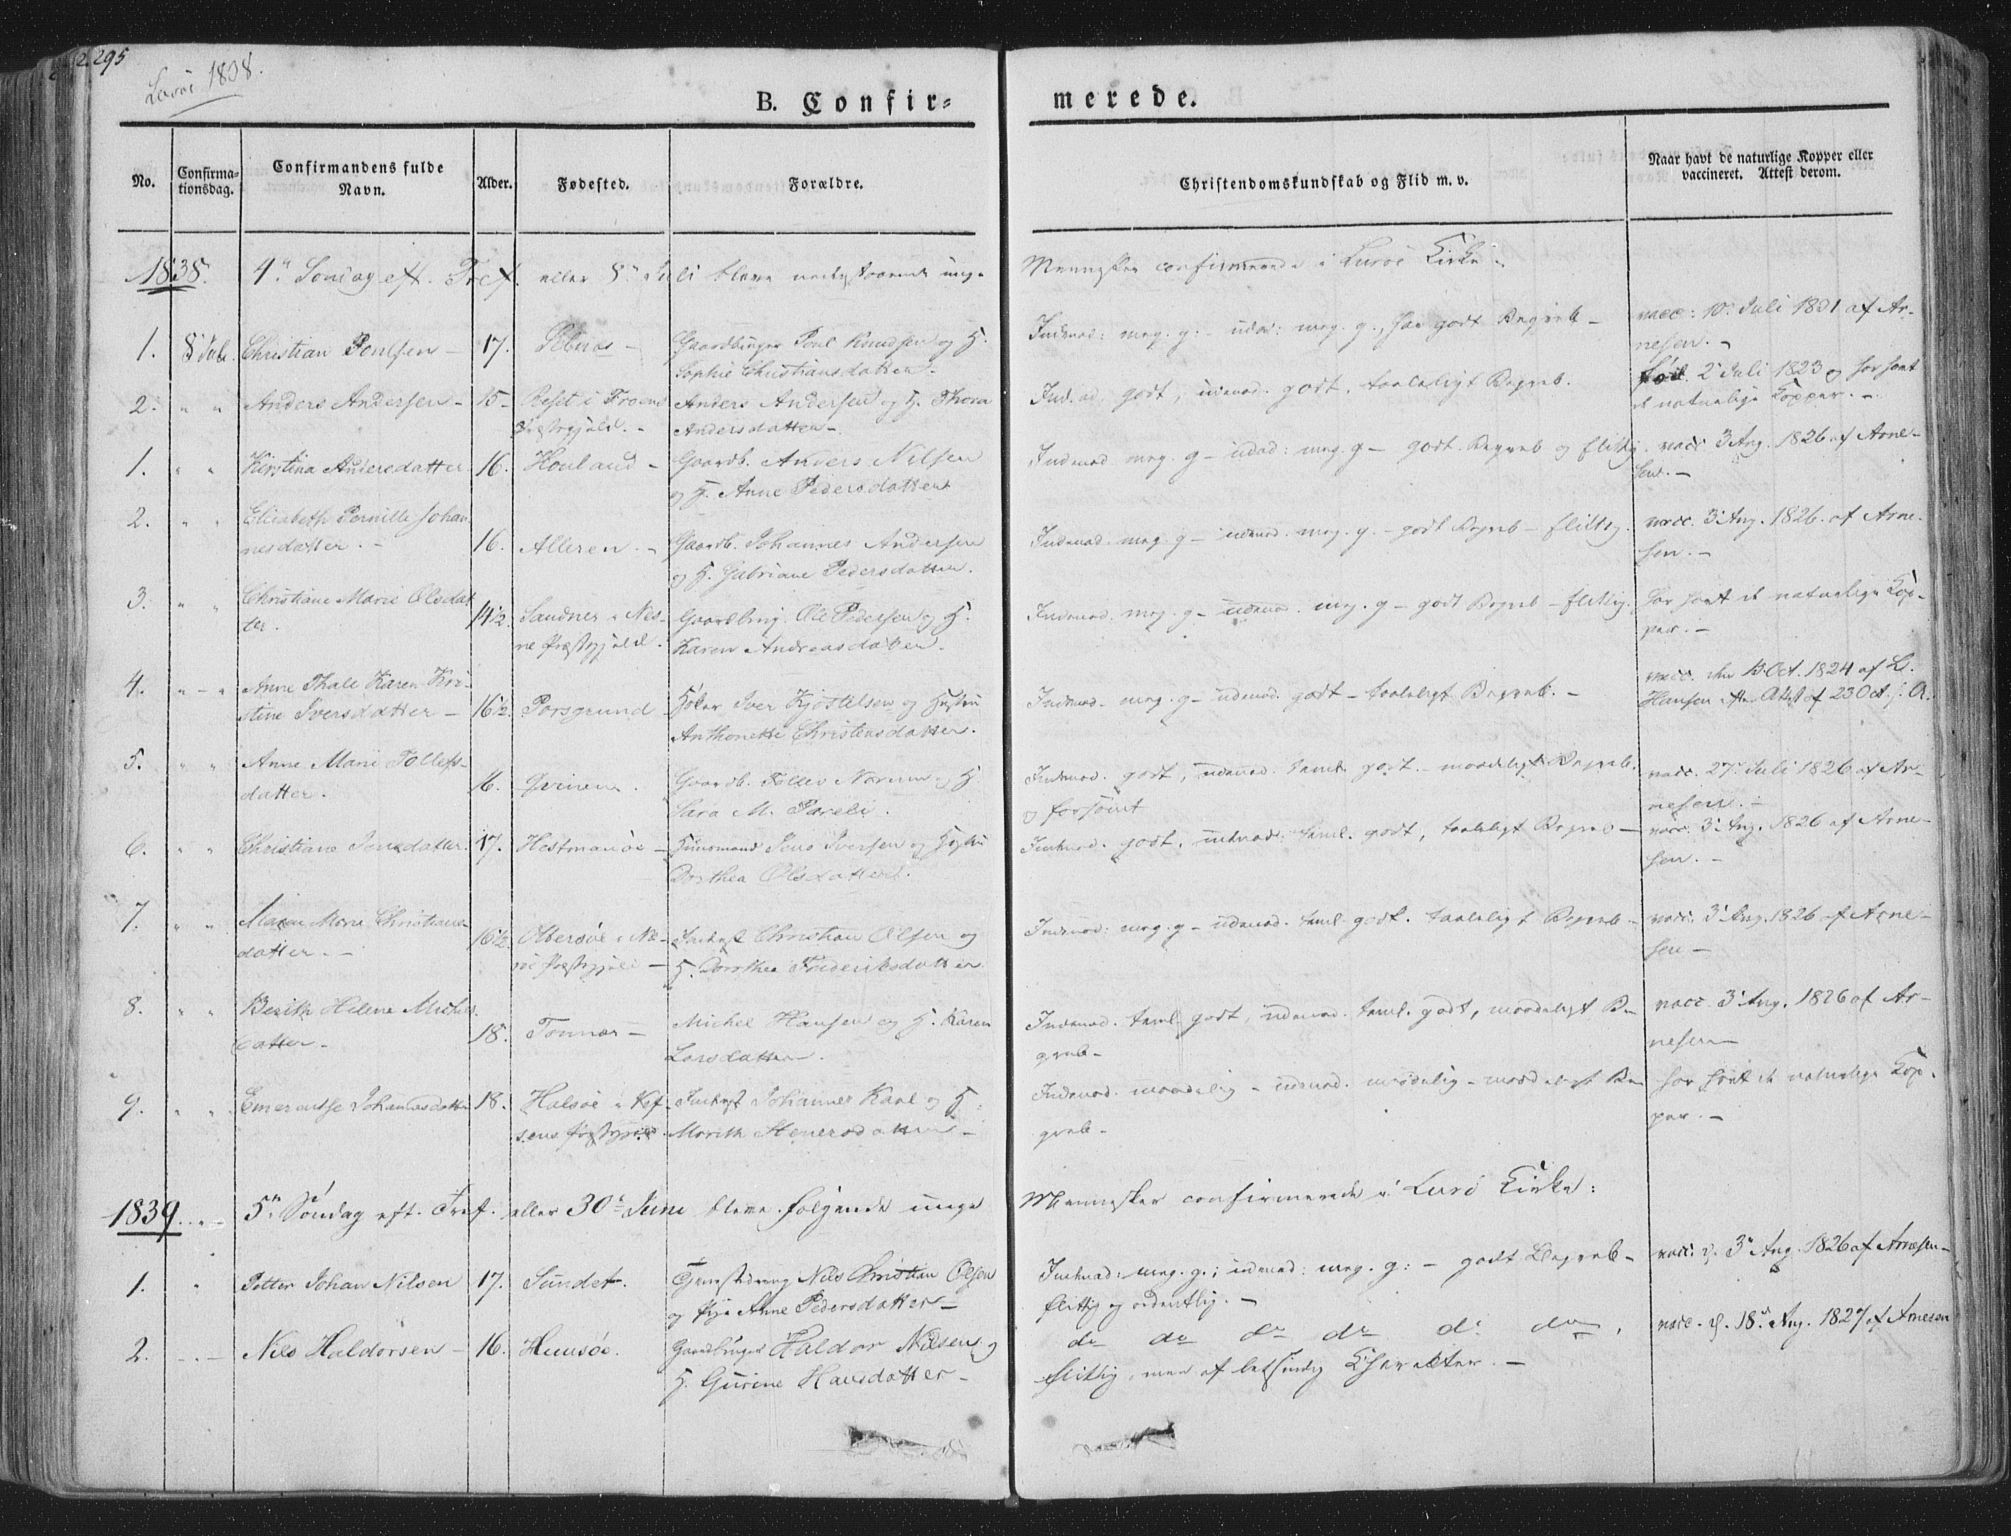 295
Luröe 1838.
B. Confir=
merede.
No.
Confirma-
tionsdag.
Confirmandens fulde
Navn.
Alder.
Fødested.
Forældre.
Christendomskundskab og Flid m. v.
Naar havt de naturlige Kopper eller
vaccineret. Attest derom.
1838. 4de Söndag eft. Tref. eller 8de Juli bleve nedenstaaende unge
Mennesker confirmerede i Luröe Kirke.
1. 8 Juli. Christian Poulsen - 17. Gaardbruger Poul Knudsen og H.
Sophie Christiansdatter.
Indvad: meg. g. - udvad: meg. g., har godt Begreb -
vacc: 10de Juli 1831 af Ar-
nesen. -
2. " " Anders Andersen - 15 - i
Præstegjeld. -
Anders Andersen og H.
Andersdatter -
Indvad. godt, udvad. godt, taaleligt Begreb.
2 Juli 1823 og har havt
de naturlige Kopper. -
1. " " Kirstina Andersdatter 16. Houland - Gaardb. Anders Nilsen
og H. Anne Pedersdatter
Indvad meg. g - udvad: meg. g - godt Begreb og flittig.
vacc. 3 Aug. 1826 af Arne-
sen. -
2. " " Elisabeth Pernille Johan-
nesdatter. - 16. Alleren. - Gaardb. Johannes Andersen
og H. Pedersdatter.
Indvad. meg. g - udvad. meg. g. - godt Begreb - flittig.
vacc. 3 Aug. 1826. af Arne-
sen. -
3. " " Christiane Marie Olsdat-
ter. 14½. Sandnes i Nes-
ne Præstegjeld. Gaardbrug. Ole Pedersen og H.
Karen Andreasdatter.
Indvad. meg. g - udvad. meg. g - godt Begreb - flittig.
har havt de naturlige Kop-
per. -
4. " - " Anne Thale Karen Kri-
stine Iversdatter - 16½. Porsgrund Iver Kjøstelsen og Hustru
Anthonette Christensdatter.
Indvad. meg. g - udvad. godt - taaleligt Begreb. -
vacc. den 13 Oct. 1824 af L.
Hansen Attest af 23 Oct. s. A.
5. " " Anne Marie Tollefs-
datter. 16. Gaardb. Tollev og H.
Sara M. Pareli.
Indvad. godt, udvad. teml. godt - maadeligt Begreb.
og forsömt
vacc. 27de Juli 1826 af Ar-
nesen. -
6. " " Christiane Jensdatter. 17. Hestmanöe - Huusmand Jens Iversen og Hustru
Dorthea Olsdatter.
Indvad. godt, udvad. teml. godt, taaleligt Begreb -
vacc. 3 Aug. 1826 af Arne-
sen. -
7. " " Maren Marie Christians-
datter. - 16½. i
Præstegjeld - Inderst Christian Olsen og
H. Dorothea Frideriksdatter
Indvad: meg. g - udvad. teml. godt. taaleligt Begreb -
vacc. 3 Aug. 1826 af Arne-
sen -
8. " " Berith Helene Michels-
datter. - 18. Tonnæs - Michel Hansen og H. Karen
Larsdatter.
Indvad. teml. godt, udvad. teml. godt, maadeligt Be-
greb -
vacc. 3 Aug. 1826 af Ar-
nesen -
9. " " Emerentse Johannesdatter 18. Halsöe i Vef-
sens Præstegjeld. Inderst Johannes Karl og H.
Marith
Indvad. maadelig - udvad. maadelig - maadeligt Be-
greb -
har havt de naturlige Kop-
per. -
1839. 5te Söndag eft. Tref. eller 30te Juni bleve følgende unge
Mennesker confirmerede i Lurö Kirke:
1. " Petter Johan Nilsen 17. Sundet. Nils Christian Olsen
og Anne Pedersdatter -
Indvad: meg. g.; udvad: meg. g: - godt Begreb -
flittig og ordentlig. -
vacc. d. 3 Aug. 1826 af Arnesen -
2. Nils Haldorsen - 16. Huusöe. Gaardbruger Haldor Nilsen og
H. Gurine Hansdatter -
do do do do do do.
flittig, men af letsindig Charakter. -
vacc. d. 18de Aug. 1827 af Arnesen